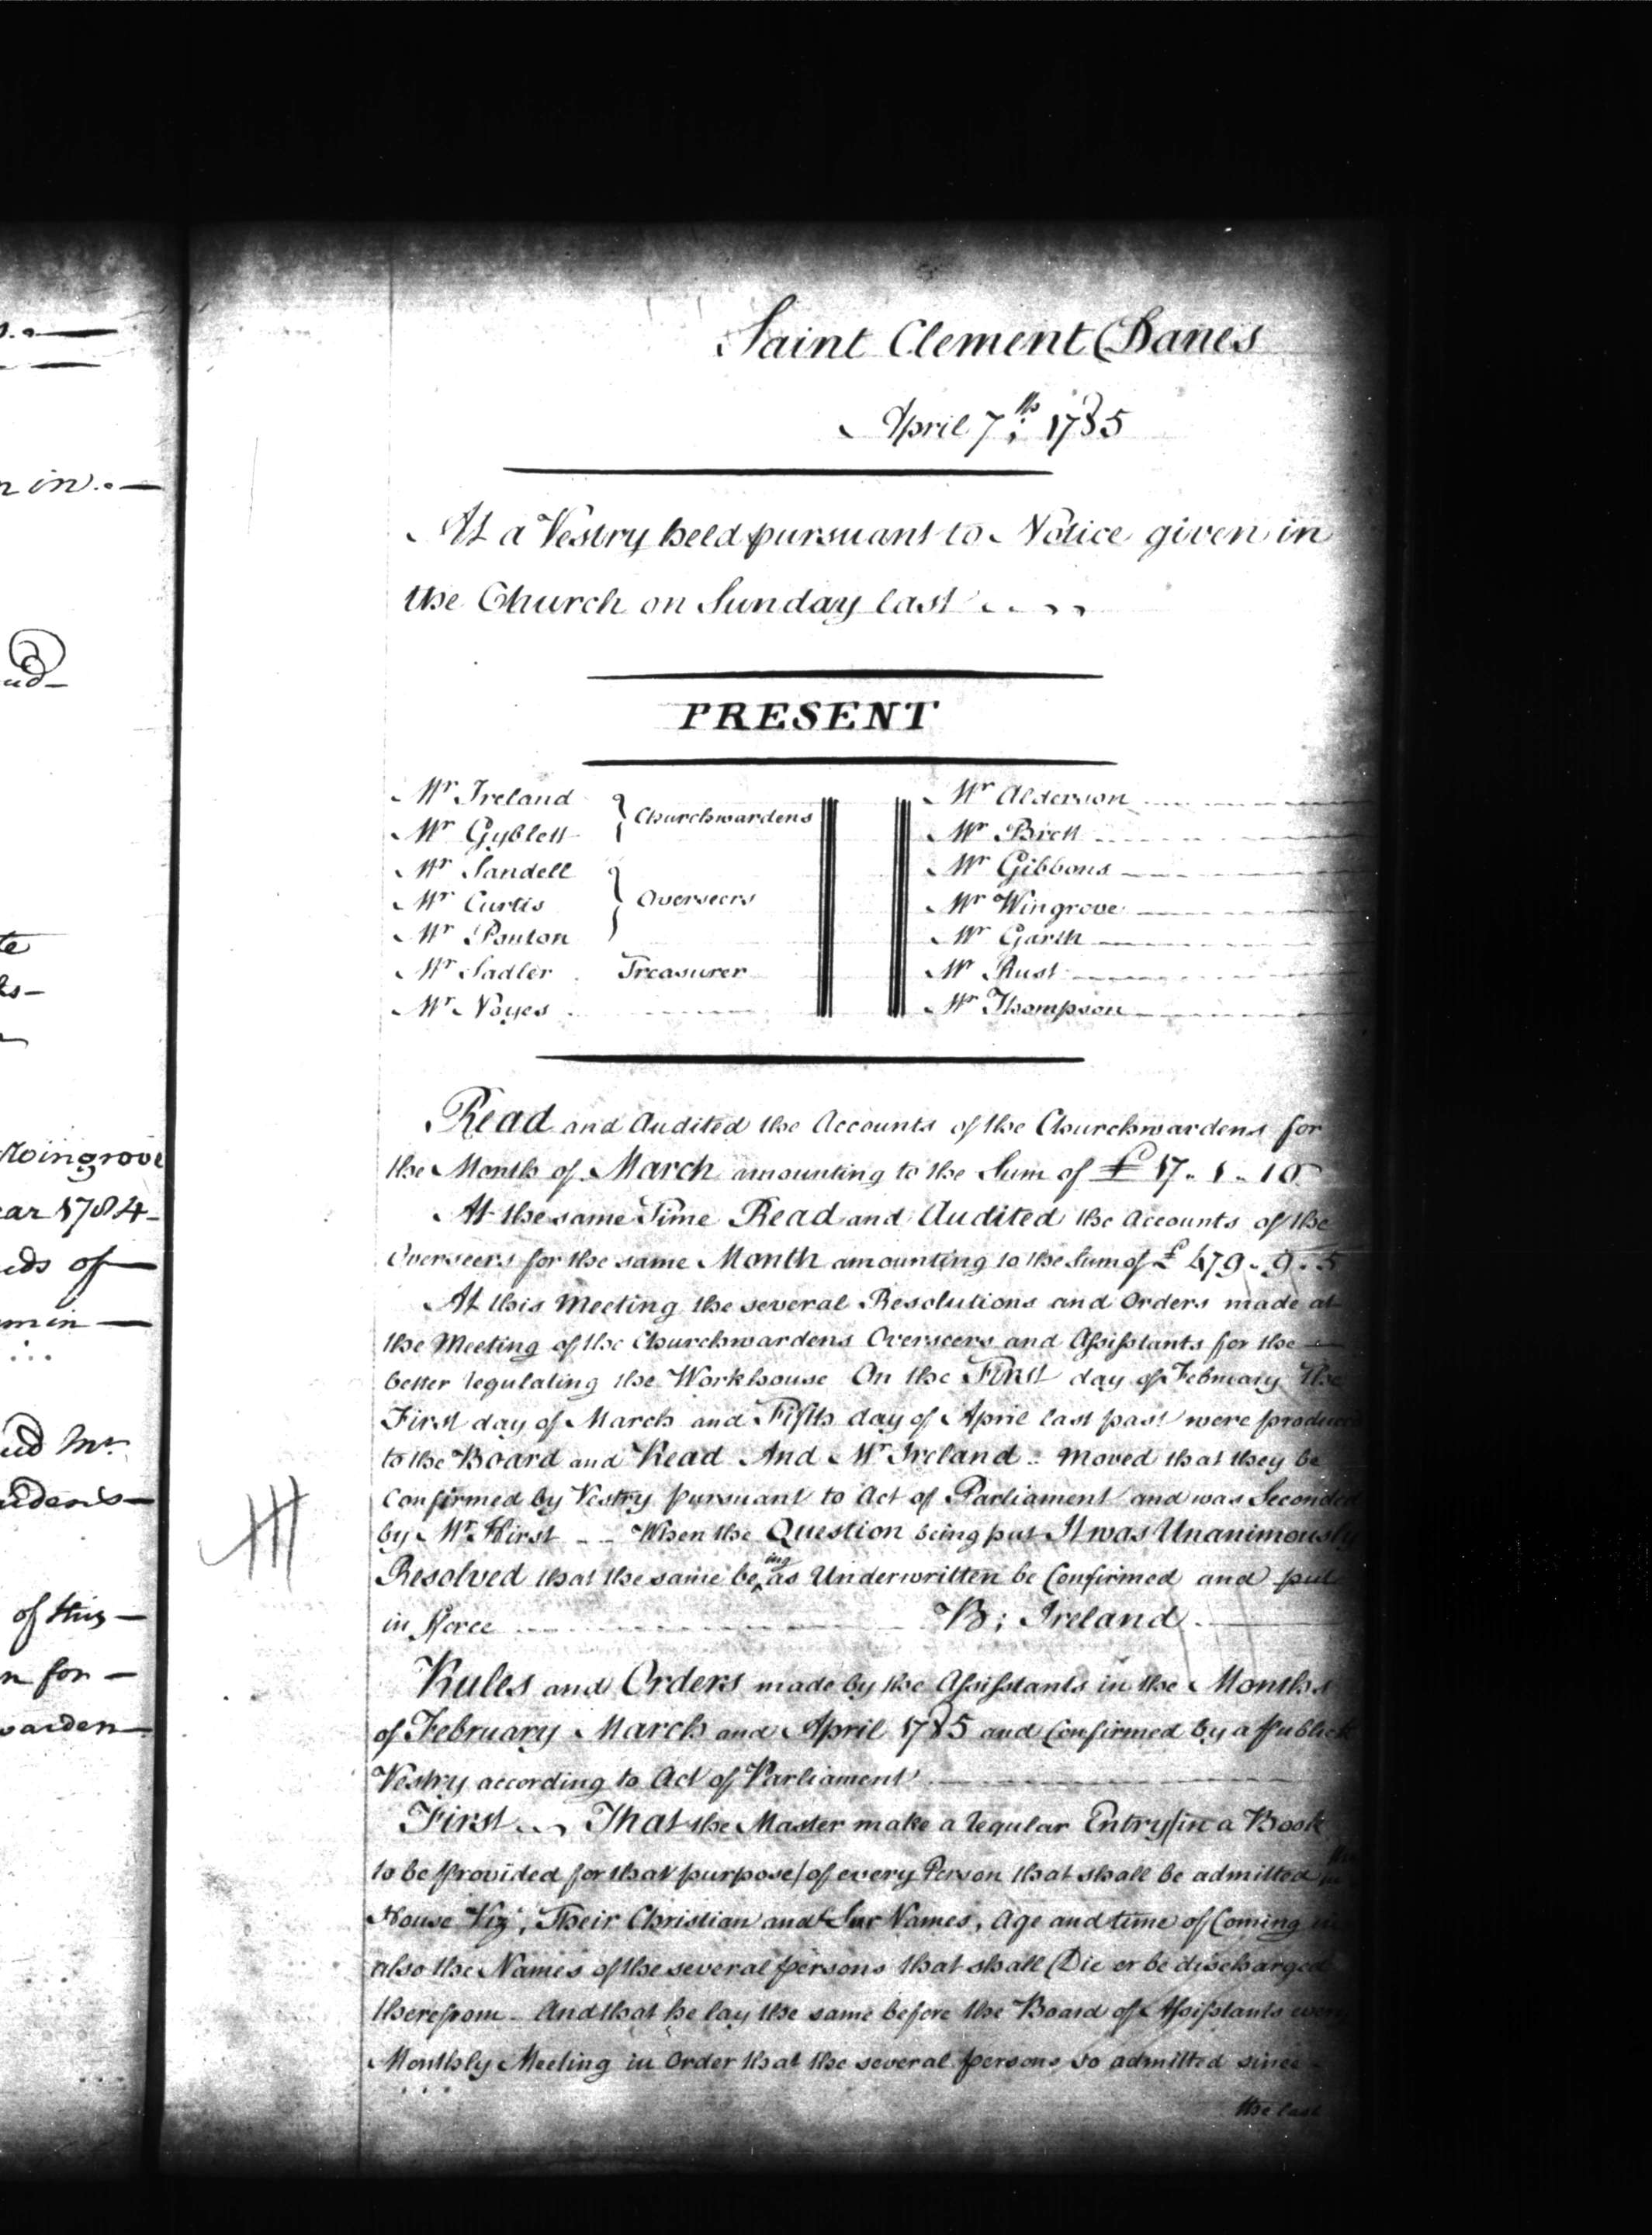 Saint Clement Danes
April 7th: 1785
At a Vestry held pursuant to Notice given in
the Church on Sunday last
PRESENT
Mr Ireland
Mr Gyblett
Churchwardens
Mr Sandell
Mr Curtis
Mr Ponton
Overseers
Mr Sadler Treasurer
Mr Noyes
Mr Alderson
Mr Brett
Mr Gibbons
Mr Wingrove
Mr Garth
Mr Rust
Mr Thompson
Read and Audited the Accounts of the Churchwardens for
the Month of March amounting to the Sum of £17..1..10
At the same Time Read and Audited the Accounts of the
Overseers for the same Month amounting to the Sum of £479.9.5
At this Meeting the several Resolutions and Orders made at
the Meeting of the Churchwardens Overseers and Assistants for the
better regulating the Workhouse On the First day of February The
First day of March and Fifth day of April last past were produced
to the Board and Read And Mr Ireland - Moved that they be
Confirmed by Vestry pursuant to Act of Parliament and was Seconded
by Mr Hirst -- When the Question being put It was Unanimously
Resolved that the same being as Underwritten be Confirmed and put
in Force B: Ireland
Rules and Orders made by the Assistants in the Months
of February March and April 1785 and Confirmed by a Publick
Vestry according to Act of Parliament
First That the Master make a regular Entry (in a Book
to be Provided for that purpose) of every Person that shall be admitted
House Viz; Their Christian and Sur Names, Age and time of Coming in
also the Names of the several persons that shall Die or be discharged
therefrom - And that he lay the same before the Board of Assistants every
Monthly Meeting in Order that the several persons so admitted since
the last
in.
ud
te
Wingrove
ar 1784
ds of
min
ud Mr
ardens
of this
n for
warden